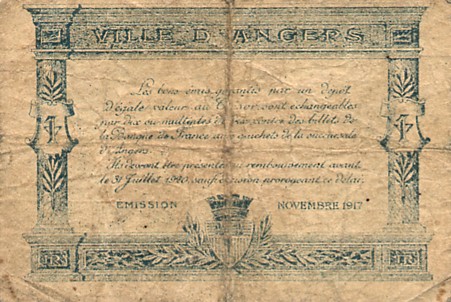 VILLE D'ANGERS
Les bons émis garantis par un dépôt
d'égale valeur au Trésor sont échangeables
par dix ou multiples de dix contre des billets de
la Banque de France aux guichets de la succursale
d'Angers.
Ils devront être présentés au remboursement avant
le 31 Juillet 1920, sauf décision prorogeant ce délai.
1 1
EMISSION NOVEMBRE 1917